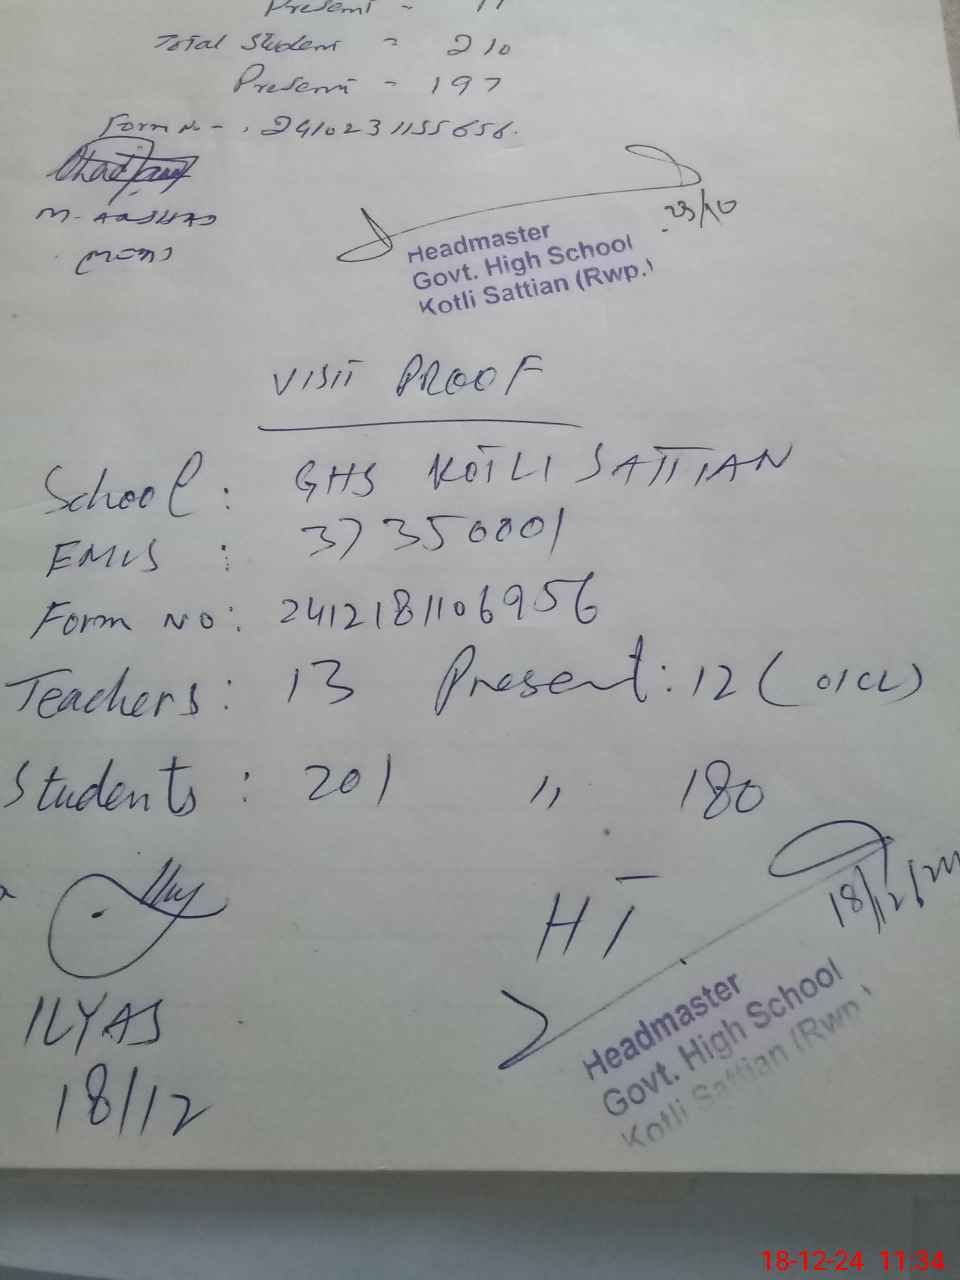 Present - 11
Total Student = 210
Present - 197
Form No - 2410231155656.
M. AASHAD
23/10
Headmaster
Govt. High School
Kotli Sattian (Rwp.)
VISIT PROOF
School: GHS KOTLI SATTIAN
EMIS : 37350001
Form NO: 2412181106956
Teachers: 13 Present: 12 (01CL)
Students: 201 " 180
HT
18/12/24
ILYAS
18/12
Headmaster
Govt. High School
Kotli Sattian (Rwp.)
18-12-24 11:34